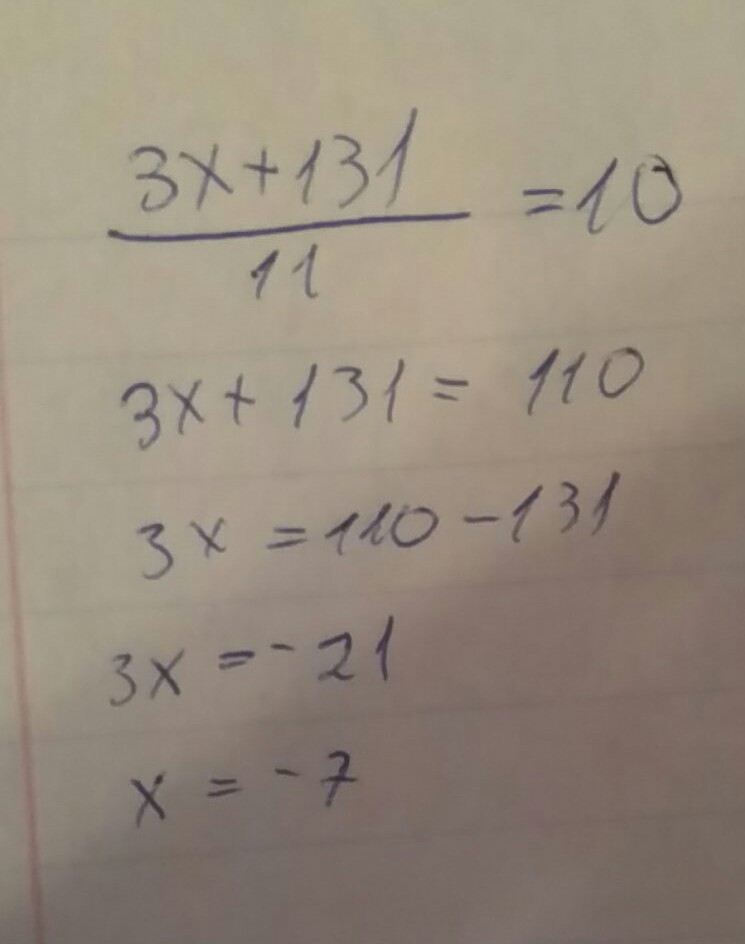 3x+131
11
=10
3x+131=110
3x=110-131
3x=-21
x=-7